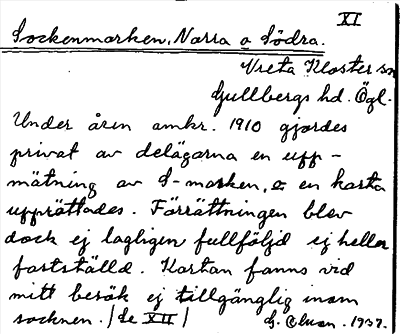 XI
Sockenmarken, Norra o Södra.
Vreta Kloster sn
Gullbergs hd. Ögl.
Under åren omkr. 1910 gjordes
privat av delägarna en upp-
mätning av S-marken, o en karta
upprättades. Förrättningen blev
dock ej lagligen fullföljd ej heller
fastställd. Kartan fanns vid
mitt besök ej tillgänglig inom
socknen. / Se XII /
G. 1937.